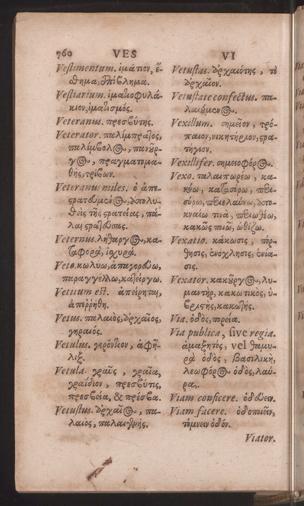 760 VES VI
Vestimentum. ἱμάτιον, ἔ-
σθημα, ἐπίβλημα.
Vestiarium. ἱματιοφυλά-
κιον, ἱματισμός.
Veteranus. πρεσβύτης.
Veterator. παλίμπρατος,
παλίμβολος, πανοῦρ-
γος, πραγματομα-
θής, τρίβων.
Veteranus miles. ὁ ἀπε-
στρατευμένος,
θεὶς τῆς στρατείας, πά-
λαι στρατιώτης.
Veternus. λήθαργος, κα-
ταφορά,
Veto. κωλύω, ἀπαγορεύω,
παραγγέλλω, κατείργω.
Vetitum est. ἀπείρηται,
ἀπεῤῥήθη.
Vetus. παλαιὸς, ἀρχαῖος,
γηραιός.
Vetulus. γερόντιον, ἀφῆ-
λιξ.
Vetula. γραῦς, γραῖα,
γραΐδιον, πρεσβῦτις,
πρεσβεία, & πρέσβα.
Vetustus. ἀρχαῖος, πα-
λαιὸς, παλαιγενής.
Vetustas. ἀρχαιότης, τὸ
ἀρχαῖον.
Vetustate confectus. πα-
λαιούμενος.
Vexillum. σημεῖον, τρό-
παιον, νικητήριον, στρα-
τήγιον.
Vexillifer. σημειοφόρος.
Vexo. ταλαιπωρέω, κα-
κόω,
κακῶς ποιῶ, ὠθίζω.
Vexatio. κάκωσις,
ἐνόχλησις,
Vexator. κακοῦργος, λυ-
μαντὴρ, κακωτικὸς, ὑ-
βριστὴς, κακωτής.
Via. ὁδὸς, πορεία.
Via publica, sive regia.
ἁμαξιτὸς, vel
ὁδὸς, βασιλικὴ,
λεωφόρος ὁδὸς, λαύ-
ρα.
Viam conficere. ὁδεύειν.
Viam facere. ὁδοποιεῖν,
τέμνειν ὁδόν.
Viator.